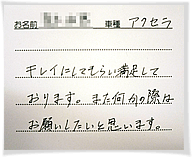 お名前 車種 アクセラ
キレイにしてもらい満足して
おります。また何かの際は
お願いしたいと思います。